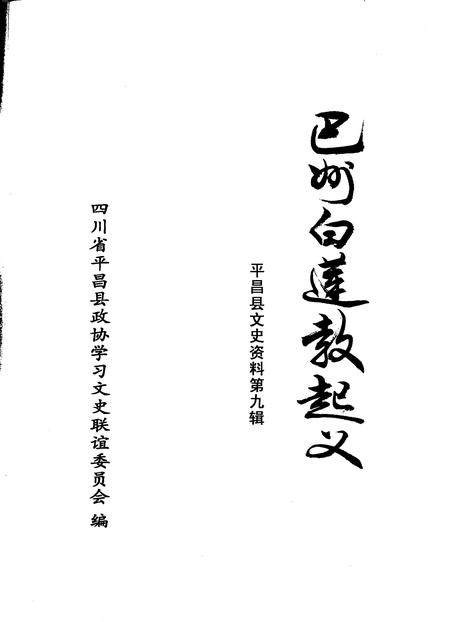 巴州白莲教起义
平昌县文史资料第九辑
四川省平昌县政协学习文史联谊委员会 编